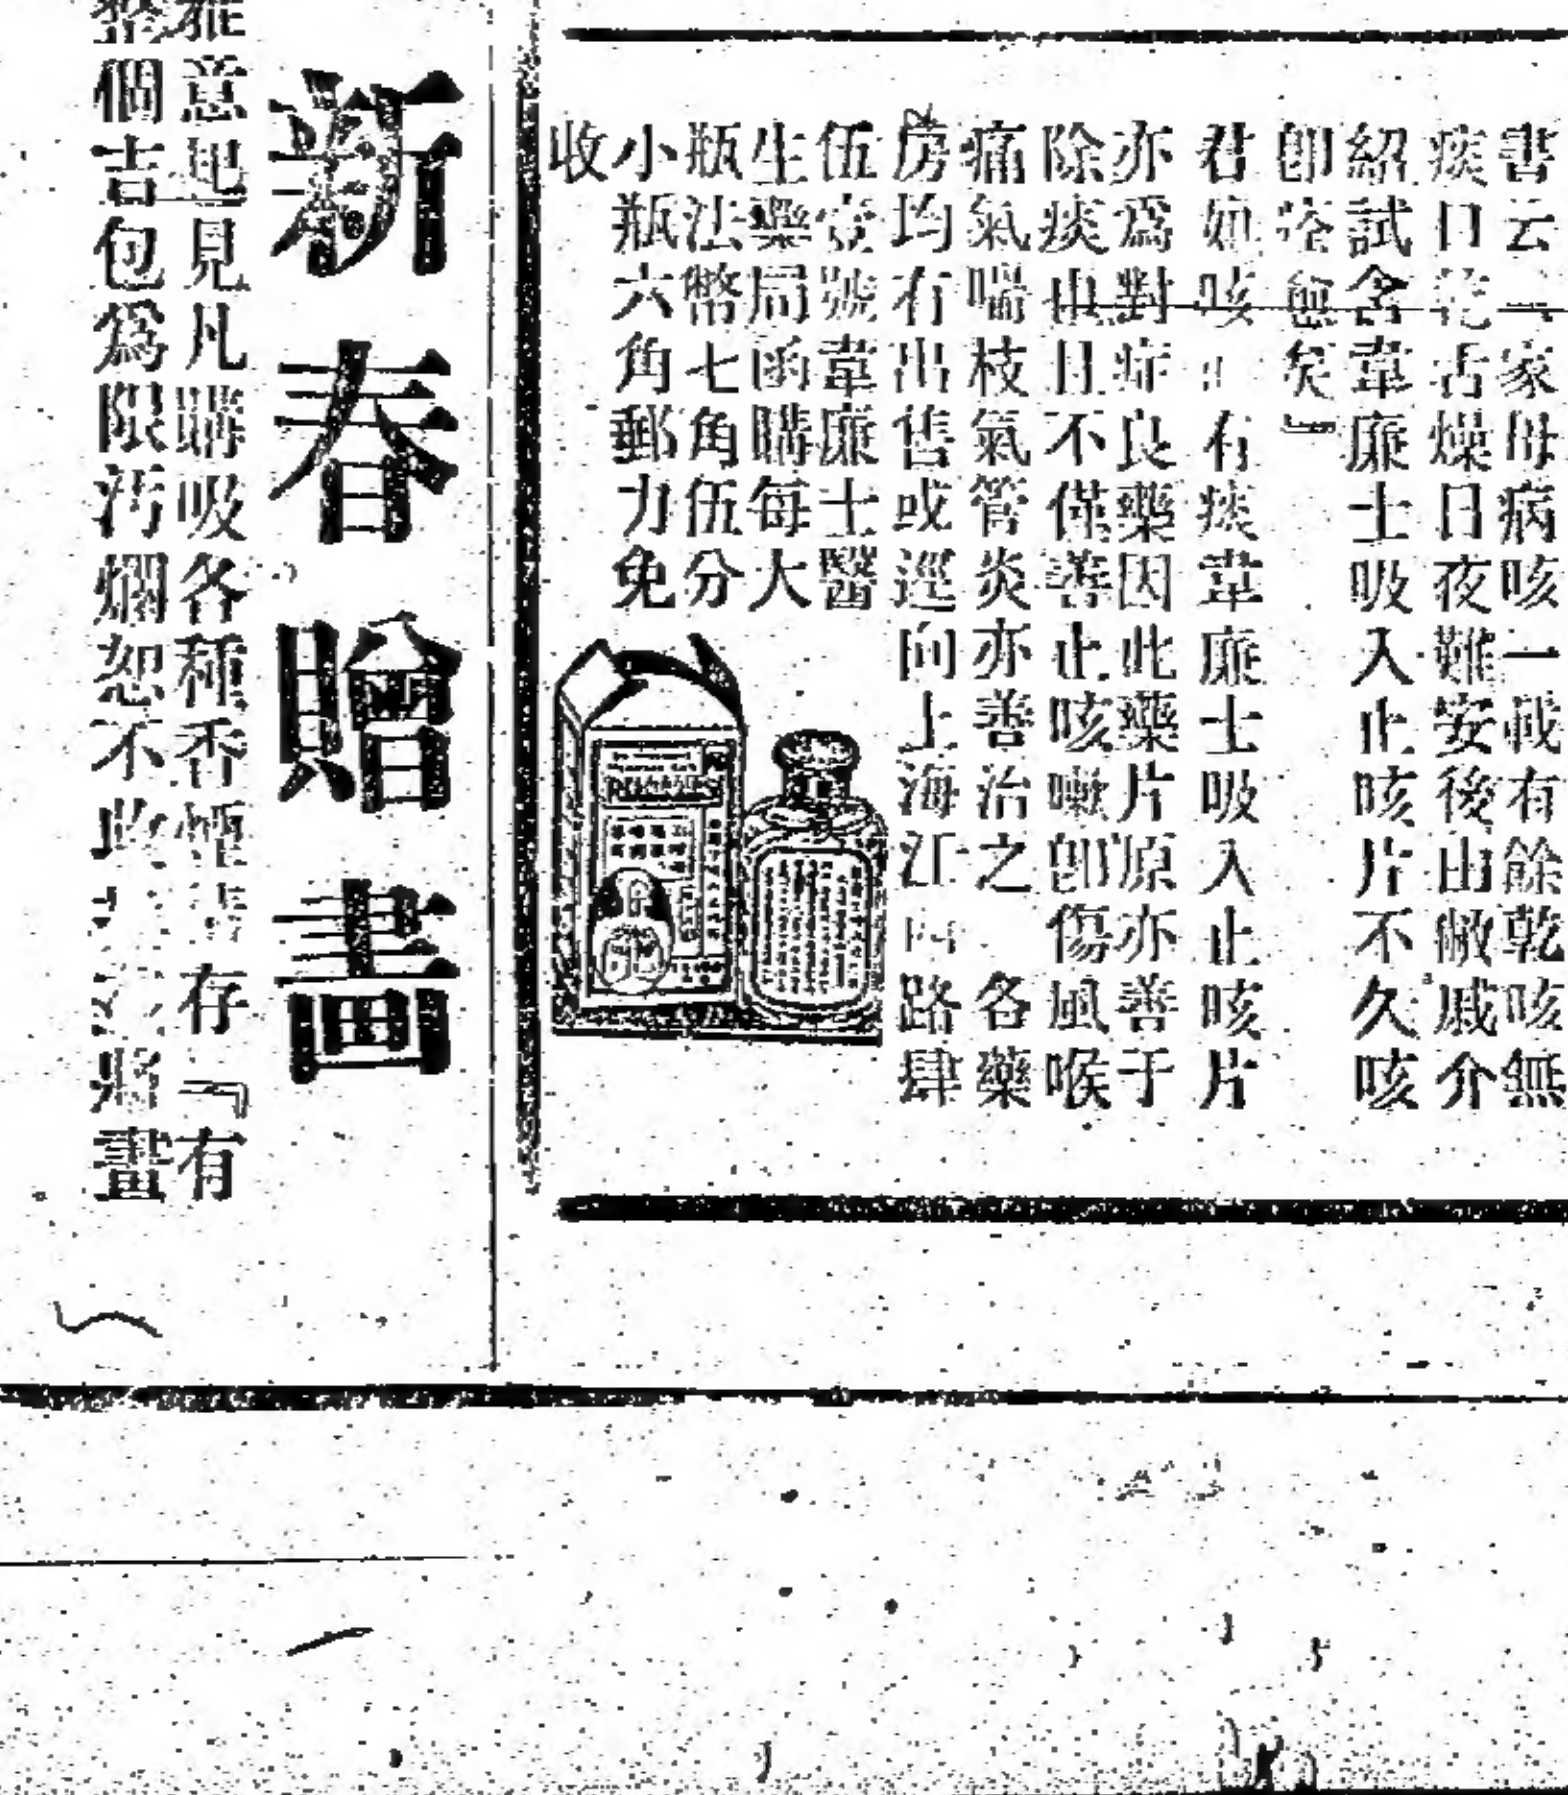 書云「家母病咳一載有餘乾咳無
痰口乾舌燥日夜難安後由敝戚介
紹試含韋廉士吸入止咳片不久咳
卽痊愈矣」
君如咳 有痰韋廉士吸入止咳片
亦爲對症良藥因此藥片原亦善于
除痰也且不僅善止咳嗽卽傷風喉
痛氣喘枝氣管炎亦善治之 各藥
房均有出售或逕向上海江西路肆
伍壹號韋廉士醫
生藥局函購每大
瓶法幣七角伍分
小瓶六角郵力免
收
新春贈畫
雅意起見凡購吸各種香煙 存『有
整個吉包爲限汚爛恕不收 將畫